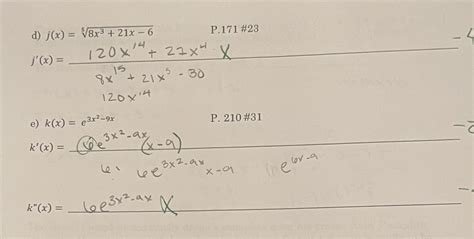 d) j(x) = ∜8x³ + 21x − 6 P.171 #23
j'(x) = 120x¹⁴ + 22x⁴ X -4
8x¹⁵ + 21x⁵ - 30
120x¹⁴
e) k(x) = e^{3x²−9x} P. 210 #31
k'(x) = 6e^{3x²-9x}(x-9) -2
6· 6e^{3x²-9x} x-9 e^{6x-9}
k"(x) = 6e^{3x²-9x} X -